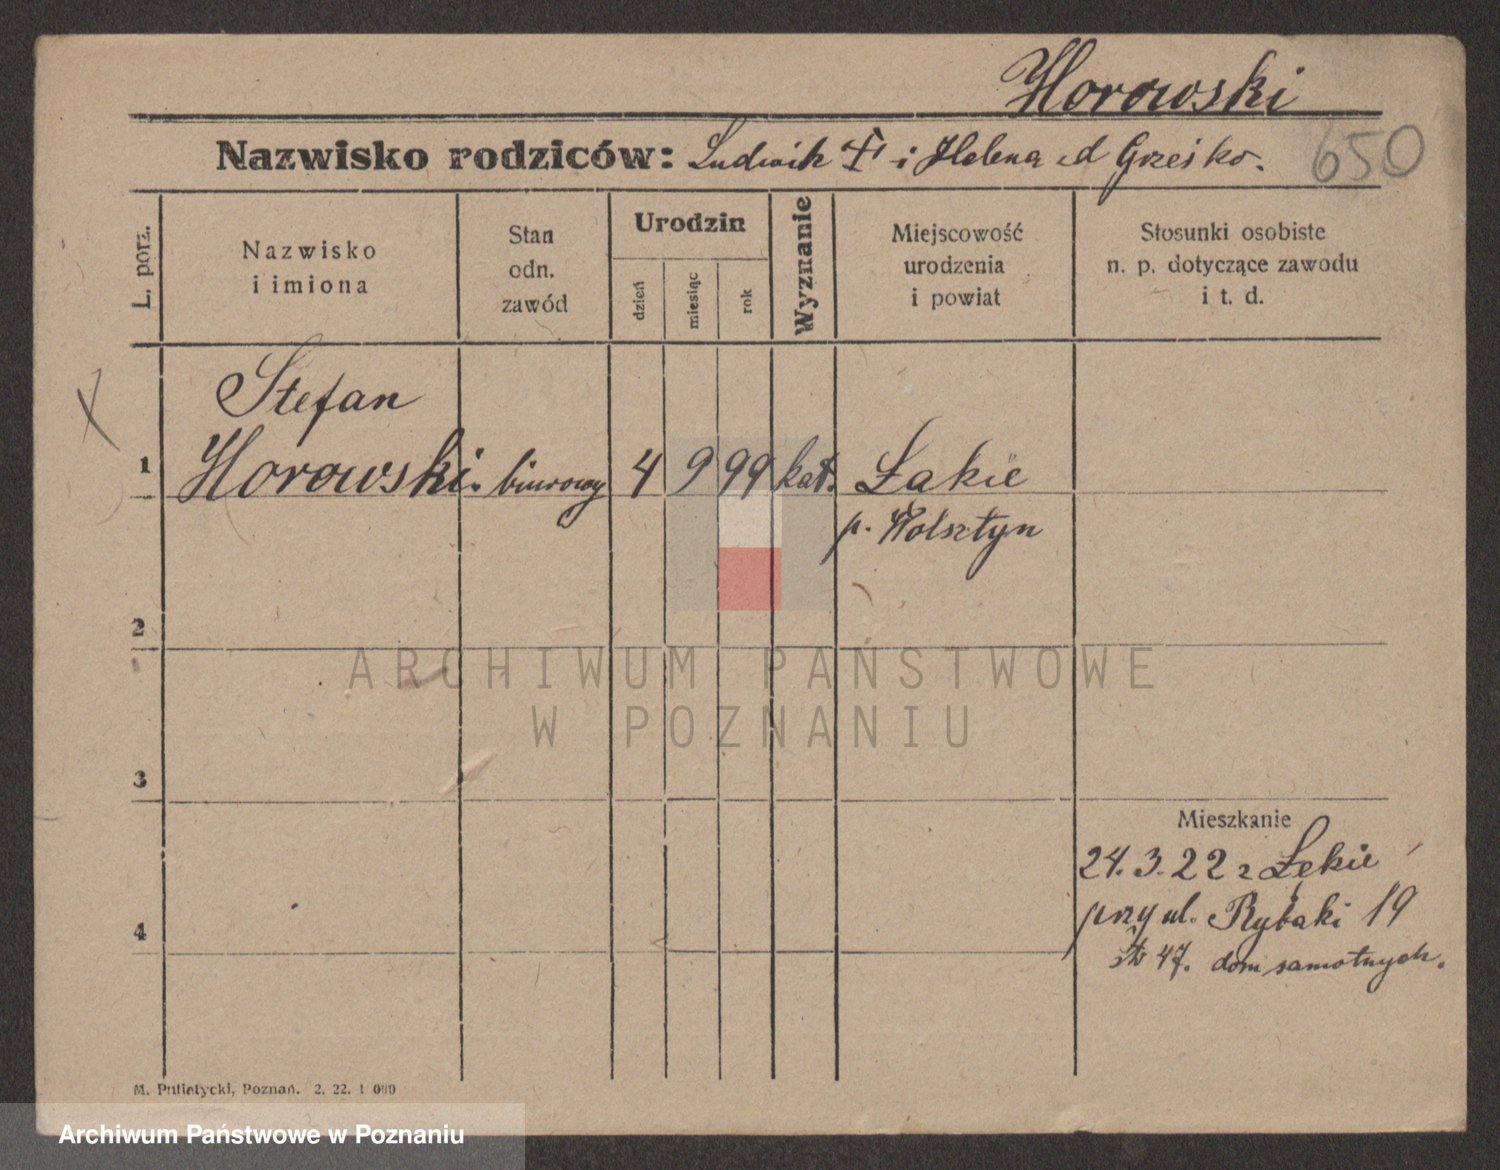 Horowski
650
Nazwisko rodziców: Ludwik † i Helena d Grześko.
L. porz.
Nazwisko
i imiona
Stan
odn.
zawód
Urodzin
dzień
miesiąc
rok
Wyznanie
Miejscowość
urodzenia
i powiat
Stosunki osobiste
n. p. dotyczące zawodu
i t. d.
Stefan
1 Horowski. biurowy 4 9 99 kat. Łąkie
p. Wolsztyn
2
ARCHIWUM PAŃSTWOWE
W POZNANIU
3
Mieszkanie
24. 3. 22 z Łękie
przy ul. Rybaki 19
4
47. dom samotnych.
M. Putiatycki, Poznań. 2. 22. 1 000
Archiwum Państwowe w Poznaniu